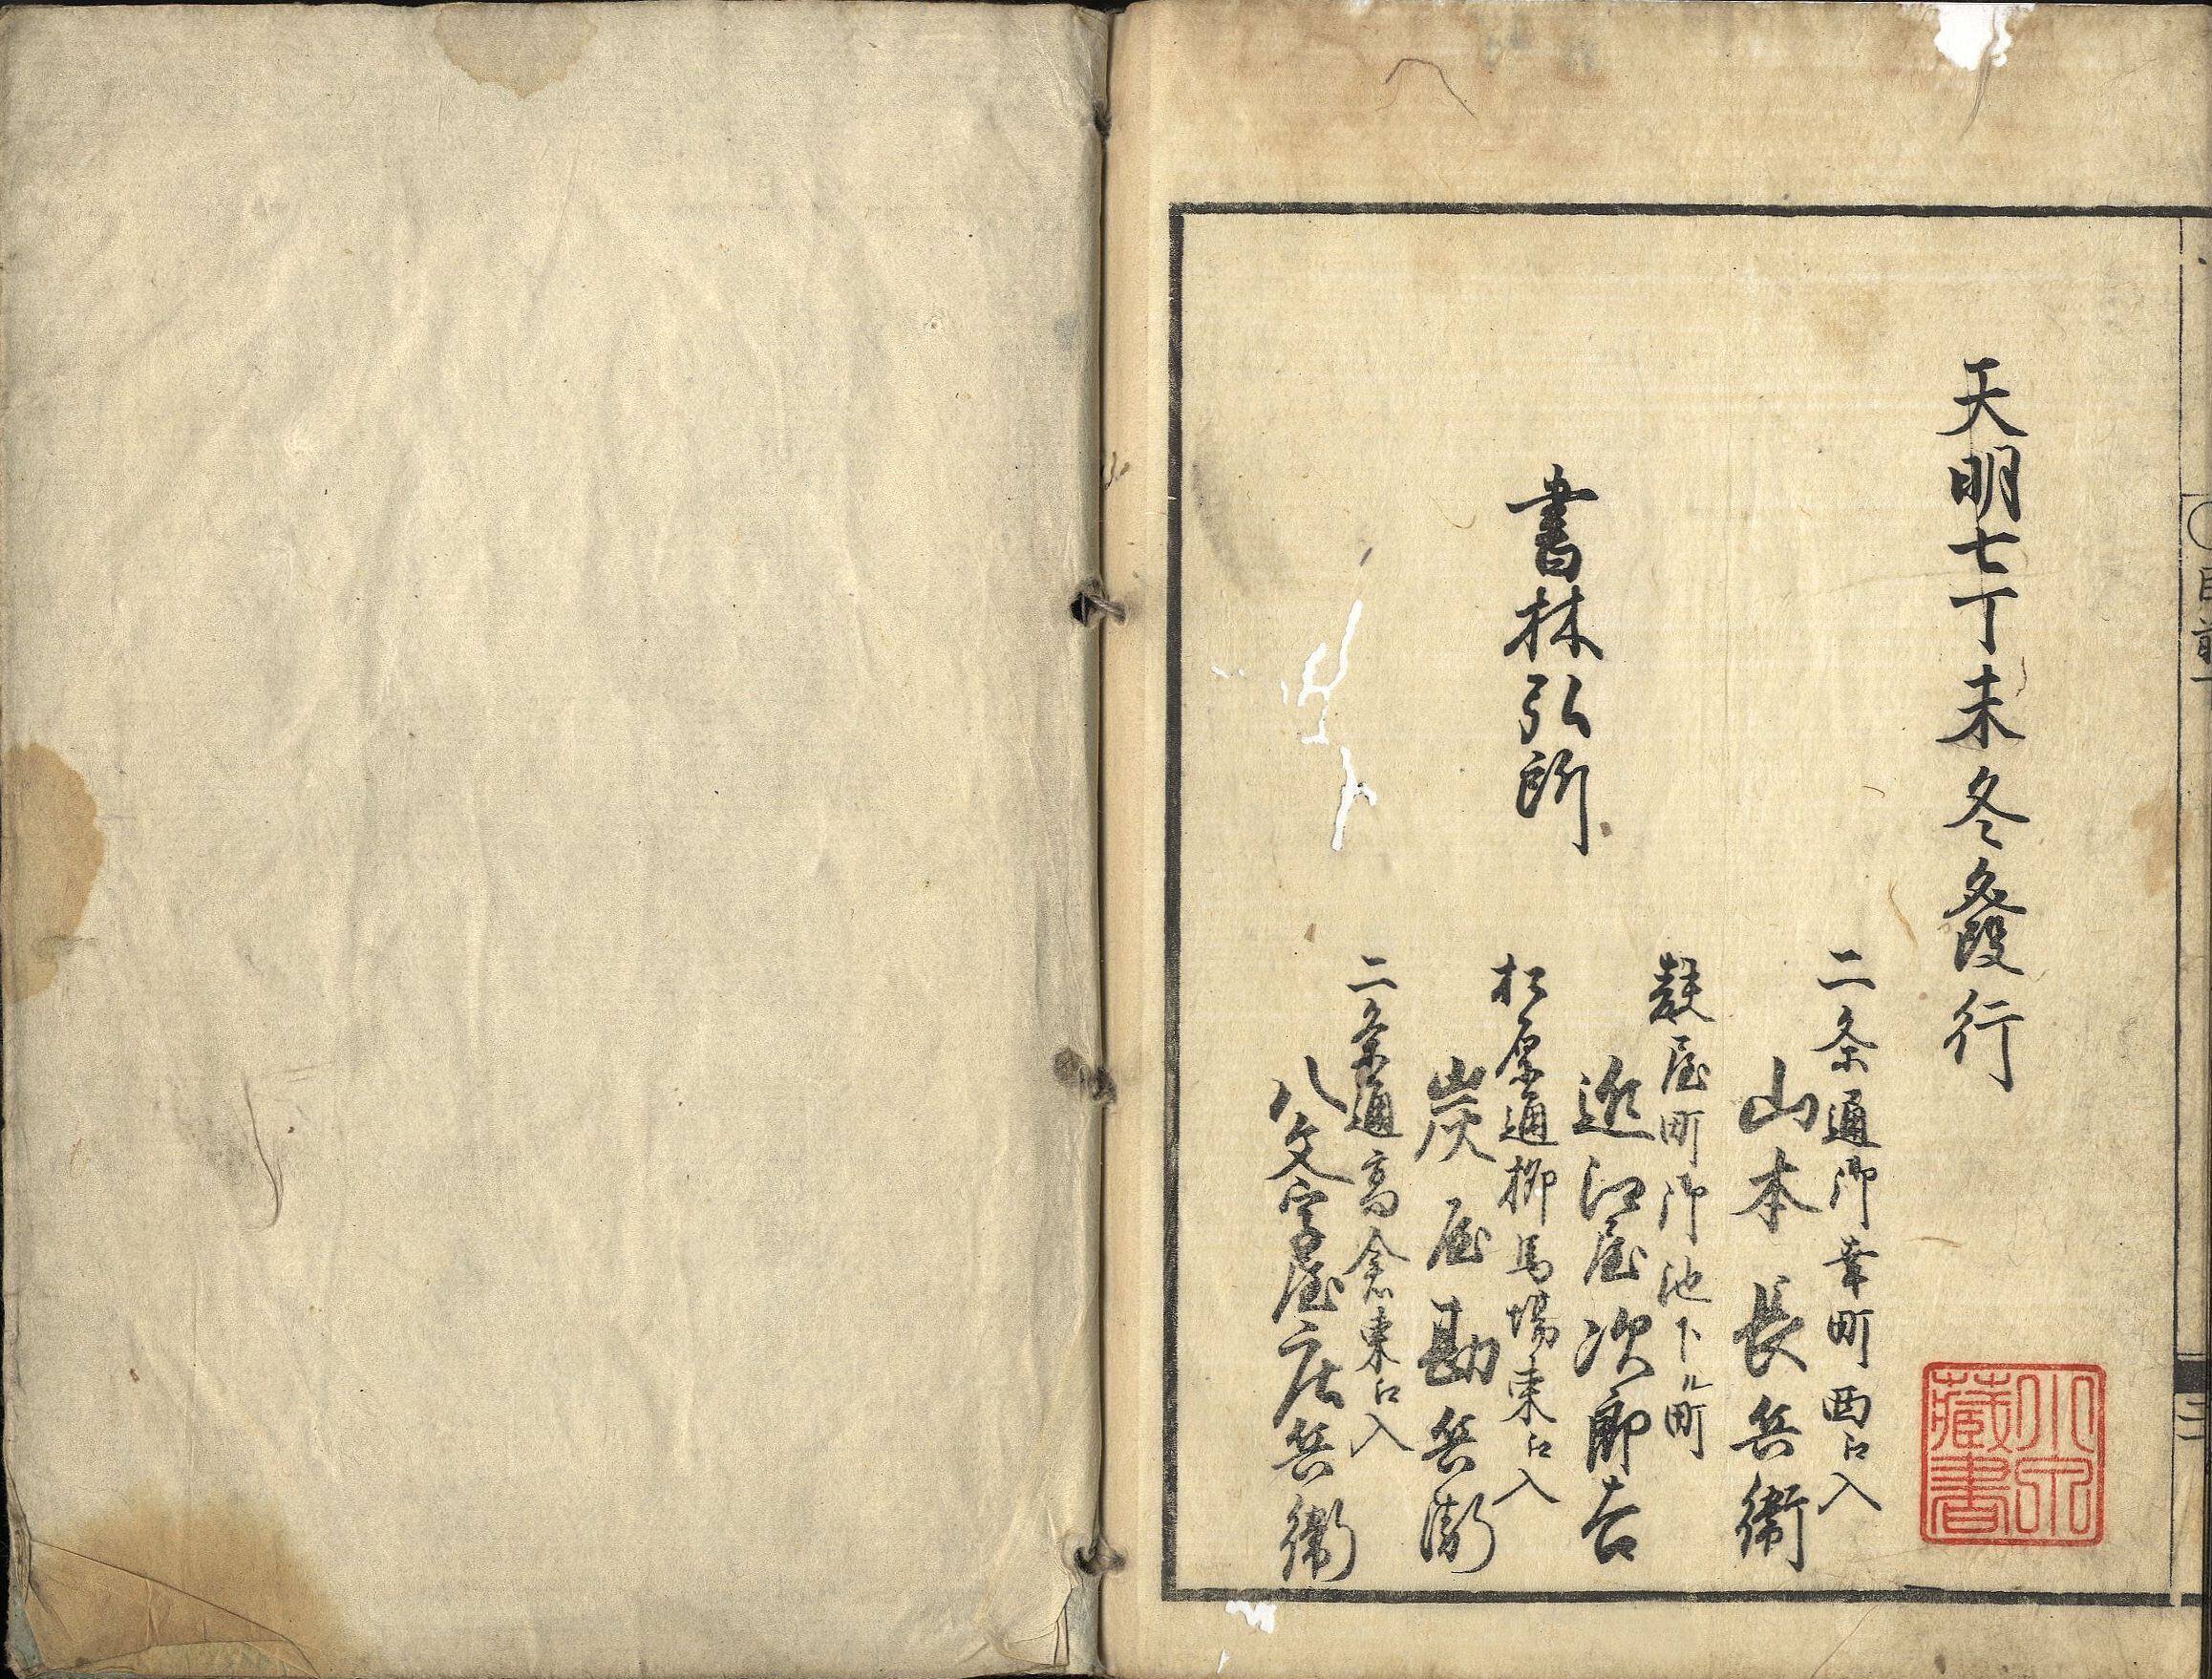 天明七丁未冬發行
二条通御幸町西口入
山本長兵衛
麸屋町御池下ル町
近江屋次郎吉
書林弘所
松原通柳馬場東口入
炭屋勘兵衛
二条通高倉東口入
八文字屋庄兵衛
小穴
藏書